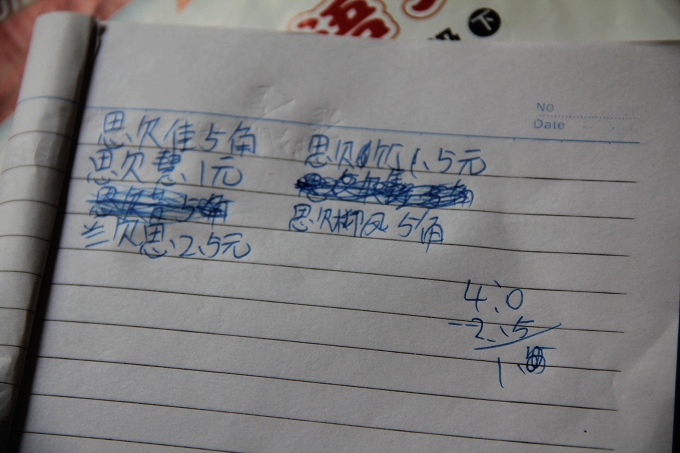 语
下
No
Date
思欠佳5角
思欠慧.1元
兰欠思.2.5元
思欠 1.5元
思欠柳凤5角
4.0
-2.5
1.